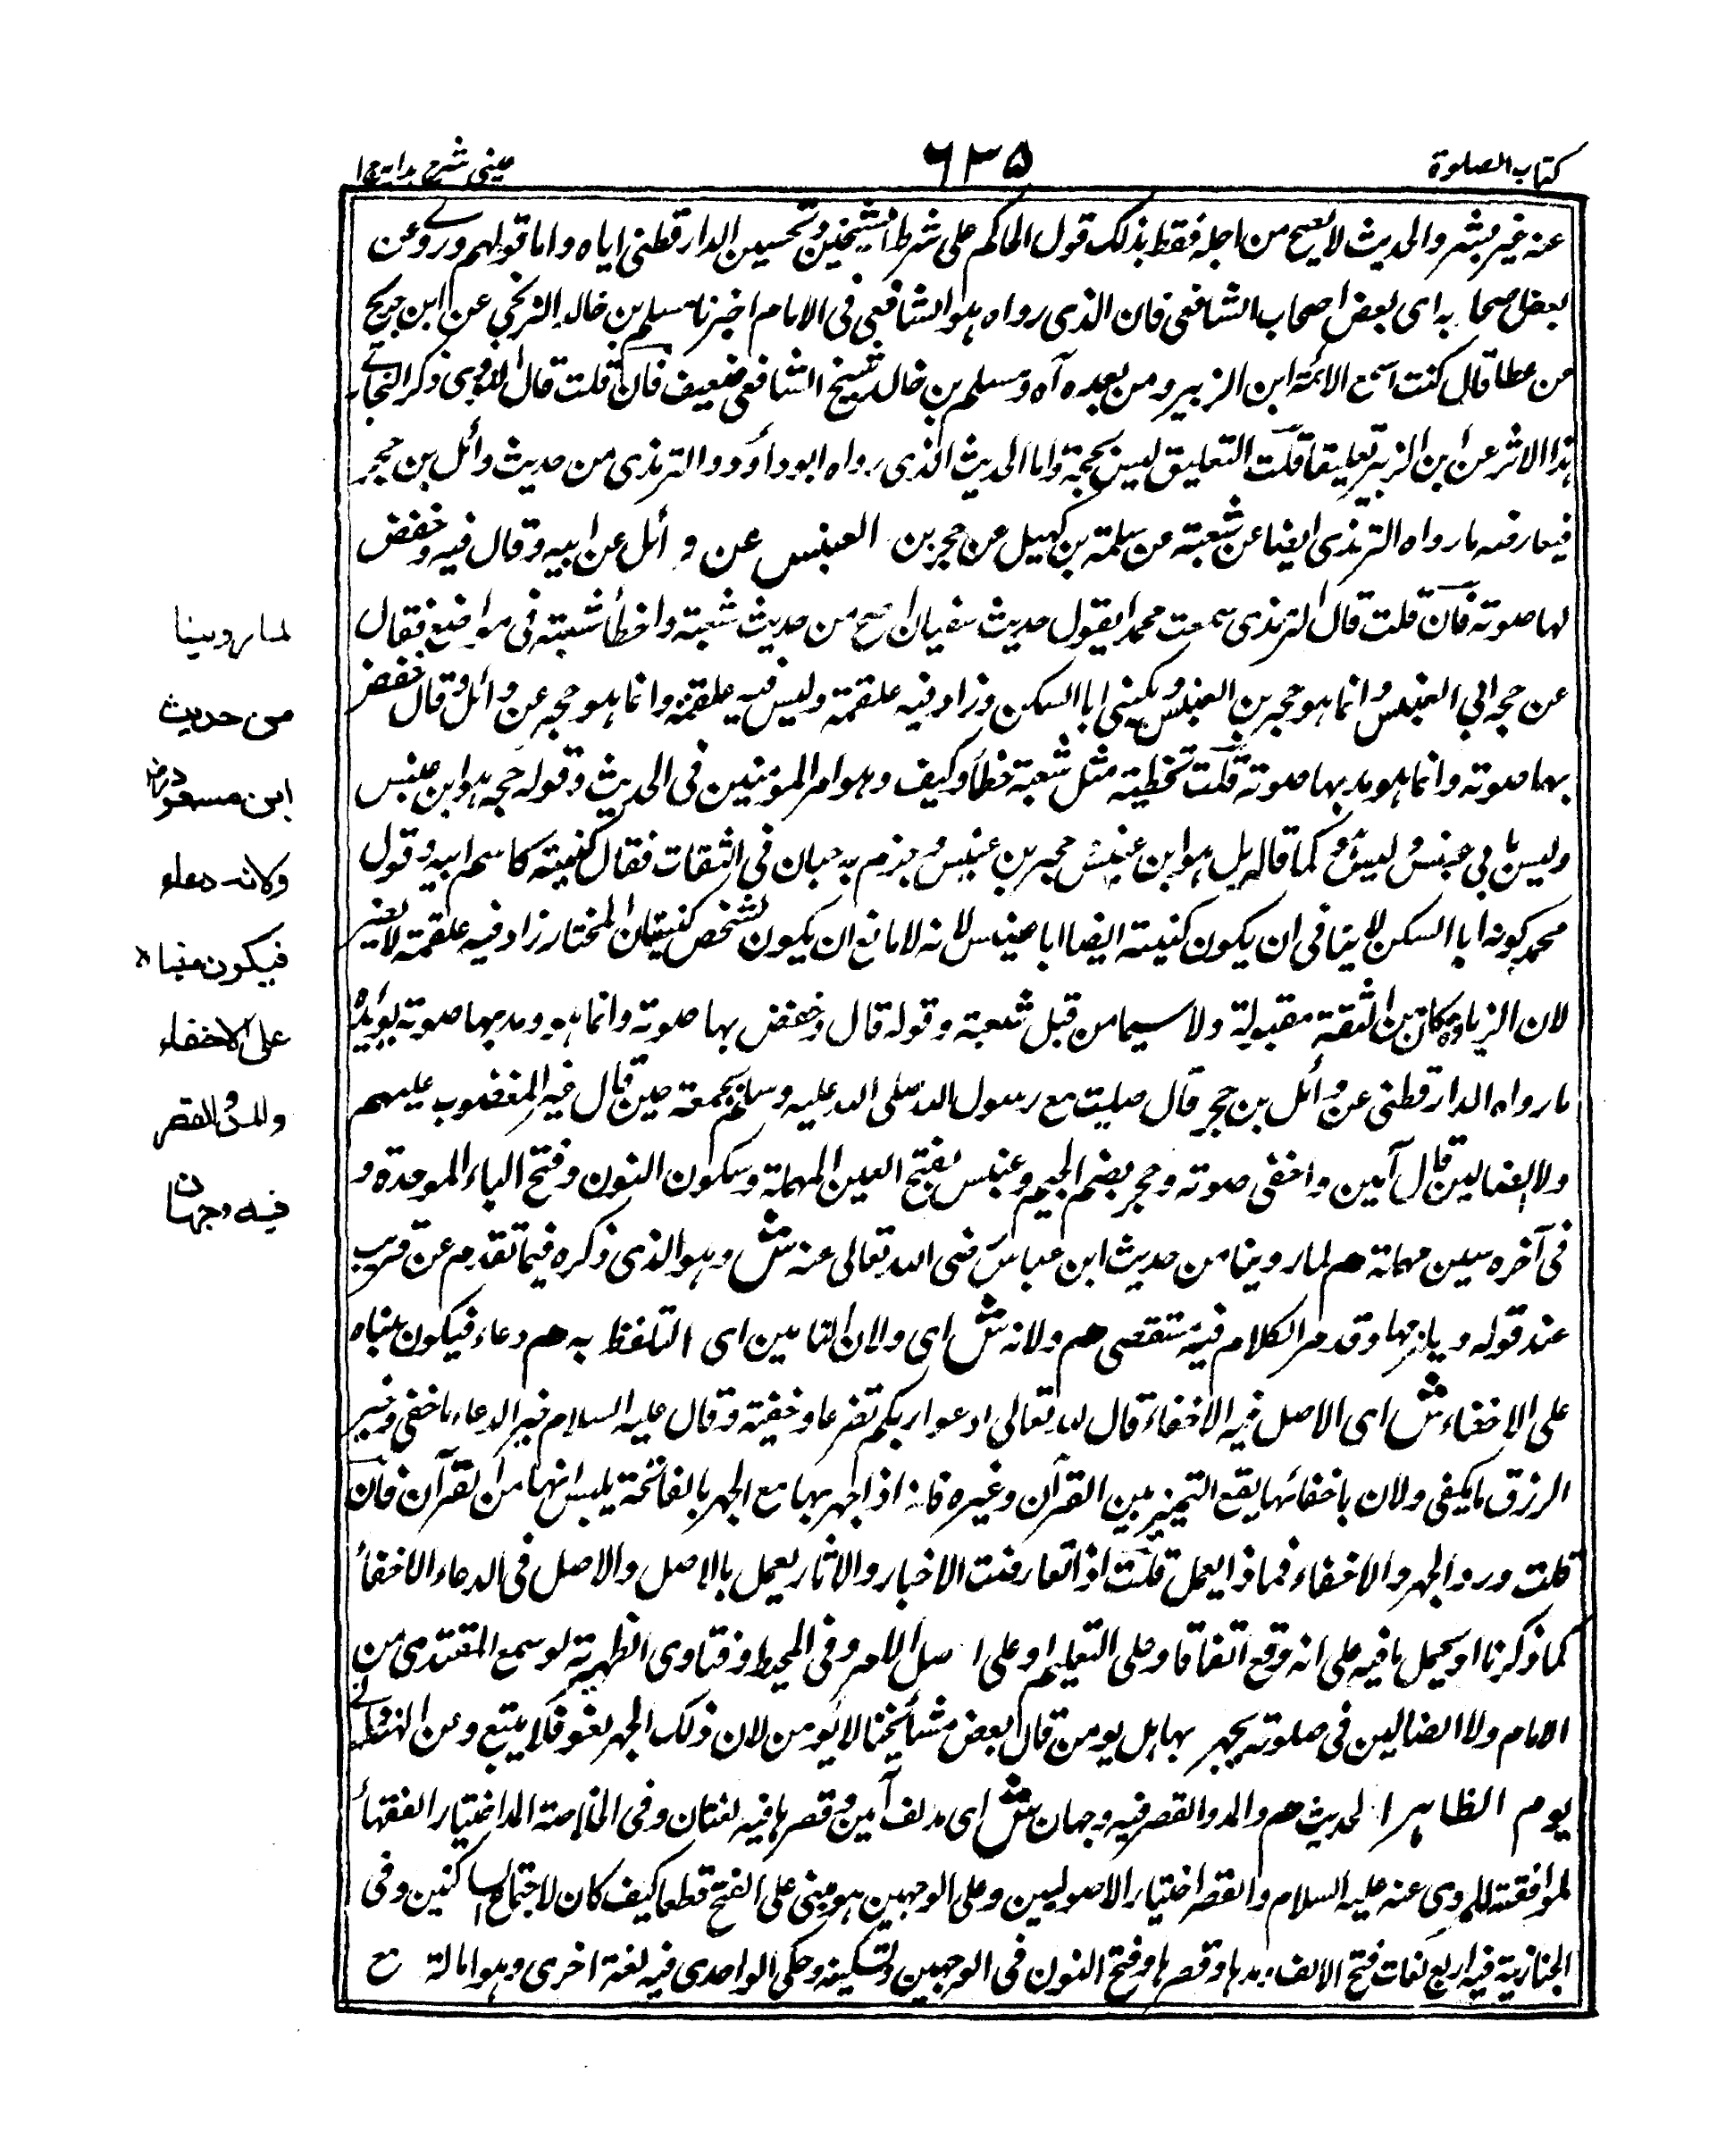 كتاب الصلوة
٦٣٥
عینی شرح هدایه ج ا
عنه غير مبشر والحديث لا يصح من اجله فقط بذلك قول الحاكم على شرط الشيخين وتحسين الدارقطنى اياه واما قولهم وروى عن
بعض صحابه اى بعض اصحاب الشافعى فان الذى رواه هو الشافعى فى الامام اخبرنا مسلم بن خالد الزنجى عن ابن جريج
عن عطا قال كنت اسمع الائمة ابن الزبير ومن بعده آه ومسلم بن خالد شيخ الشافعى ضعيف فان قلت قال النووى ذكر البخارى
هذا الاثر عن ابن الزبير تعليقا قلت التعليق ليس بحجة واما الحديث الذى رواه ابو داؤد والترمذى من حديث وائل بن حجر
فيعارضه ما رواه الترمذى ايضا عن شعبة من سلمة بن كهيل عن حجر بن العنبس عن وائل عن ابيه وقال فيه وخفض
بها صوته فان قلت قال الترمذى سمعت محمدا يقول حديث سفيان اصح من حديث شعبة واخطأ شعبة فى مواضع فقال
عن حجر ابى العنبس وانما هو حجر بن العنبس ويكنى ابا السكن وزاد فيه علقمة وليس فيه علقمة وانما هو حجر عن وائل وقال خفض
بها صوته وانما هو مد بها صوته قلت تخطية مثل شعبة خطأ وكيف وهو امير المؤمنين فى الحديث وقوله حجر هو ابن عنبس
وليس بابى عنبس ليس كما قاله بل هو ابن عنبس حجر بن عنبس وجزم به حبان فى الثقات فقال كنيته كاسم ابيه وقول
محمد كونه ابا السكن لا ينافى ان يكون كنيته ايضا ابا عنبس لانه لا مانع ان يكون لشخص كنيتان المختار زاد فيه علقمة لا يضير
لان الزيادة كان من الثقة مقبولة ولا سيما من قبل شعبة وقوله قال وخفض بها صوته وانما هو ومد بها صوته يؤيده
ما رواه الدارقطنى عن وائل بن حجر قال صليت مع رسول الله صلى الله عليه وسلم فسمعته حين قال غير المغضوب عليهم
ولا الضالين قال آمين واخفى صوته وحجر بضم الجيم وعنبس بفتح العين المهملة وسكون النون وفتح الباء الموحدة و
فى آخره سين مهملة هم لما روينا من حديث ابن عباس رضى الله تعالى عنه ش وهو الذى ذكره فيما تقدم عن قريب
عند قوله ويا مرها وقد مر الكلام فيه مستقصى هم ولانه ش اى ولان التامين اى التلفظ به هم دعاء فيكون مبناه
على الاخفاء ش اى الاصل فيه الاخفاء قال الله تعالى ادعوا ربكم تضرعا وخفية وقال عليه السلام خير الدعاء ما خفى وخير
الرزق ما يكفى ولان باخفائها يقع التميز بين القرآن وغيره فانه اذا جهر بها مع الجهر بالفاتحة يلبس انها من القرآن فان
قلت ورد الجهر والاخفاء فماذا يعمل قلت اذا تعارضت الاخبار والاثار يعمل بالاصل والاصل فى الدعاء الاخفاء
كما ذكرنا او يحمل ما فيه على انه وقع اتفاقا وعلى التعليم او على اصل الامر وفى المحيط وفتاوى الظهيرية لو سمع المقتدى من
الامام ولا الضالين فى صلوته يجهر بها هل يؤمن قال بعض مشائخنا لا يؤمن لان ذلك الجهر لغو فلا يتبع وعن الهندوانى
يؤمن الظاهر الحديث هم والمد والقصر فيه وجهان ش اى مد الف آمين وقصرها فيه لغتان وفى الخلاصة المد اختيار الفقهاء
لموافقته للمروى عنه عليه السلام والقصر اختيار الاصوليين وعلى الوجهين هو مبنى على الفتح قطعا كيف كان لاجتماع الساكنين وفى
الجنازية فيه اربع لغات فتح الالف بمدها وقصرها وفتح النون فى الوجهين وتسكينه وحكى الواحدى فيه لغة اخرى وهو امالة ح
لما روينا
من حديث
ابن مسعود رض
ولانه دعاء
فيكون مبناه
على الاخفاء
والمد والقصر
فيه وجهان